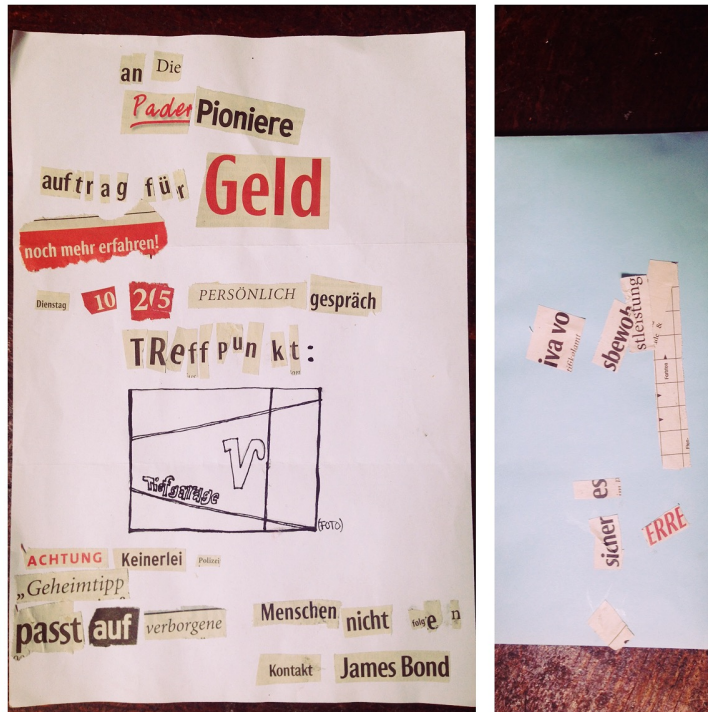 an Die
Pader Pioniere
auftrag für Geld
noch mehr erfahren!
Dienstag 10 25 PERSÖNLICH gespräch
TReffpunkt:
Tiefgarage
(FOTO)
ACHTUNG Keinerlei Polizei
„Geheimtipp
passt auf verborgene Menschen nicht folgen
Kontakt James Bond
iva vo
sbewoh
stleistung
es
sicher
ERRE